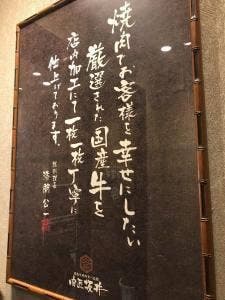 焼肉でお客様を幸せにしたい
厳選された国産牛を
店内加工にて一枚一枚丁寧に
仕上げております。